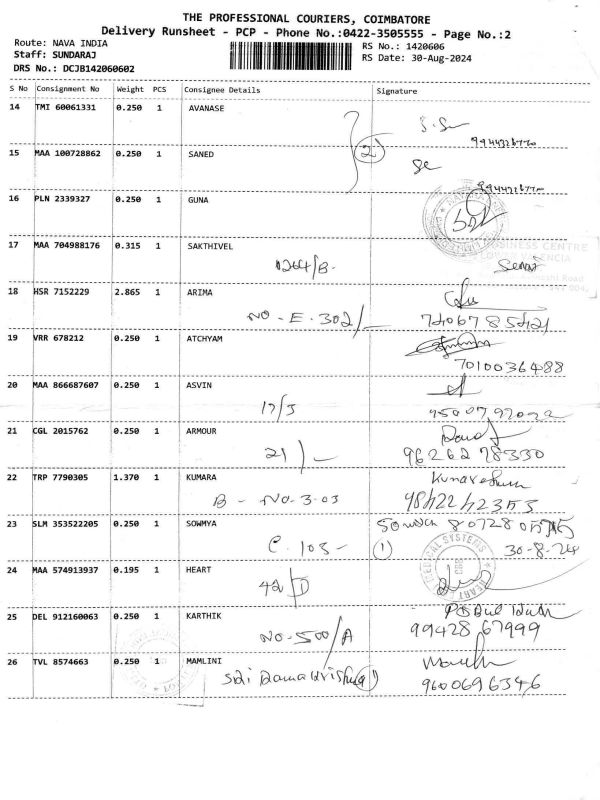 THE PROFESSIONAL COURIERS, COIMBATORE
Delivery Runsheet - PCP - Phone No.:0422-3505555 - Page No.:2
Route: NAVA INDIA
RS No.: 1420606
Staff: SUNDARAJ
RS Date: 30-Aug-2024
DRS No.: DCJB142060602
S No Consignment No Weight PCS Consignee Details Signature
14 TMI 60061331 0.250 1 AVANASE
2
15 MAA 100728862 0.250 1 SANED
16 PLN 2339327 0.250 1 GUNA
17 MAA 704988176 0.315 1 SAKTHIVEL
BUSINESS CENTRE
0264/B-
18 HSR 7152229 2.865 1 ARIMA
NO - E. 302/-
19 VRR 678212 0.250 1 ATCHYAM
7010036488
20 MAA 866687607 0.250 1 ASVIN
17/J
21 CGL 2015762 0.250 1 ARMOUR
21/-
9626278330
22 TRP 7790305 1.370 1 KUMARA
B - NO-3-03
23 SLM 353522205 0.250 1 SOWMYA
C. 103- (1) 30-8-24
24 MAA 574913937 0.195 1 HEART
42/D
25 DEL 912160063 0.250 1 KARTHIK
NO-500/A 99428 67999
26 TVL 8574663 0.250 1 MAMLINI
Sri Ramakrishna
9600696346